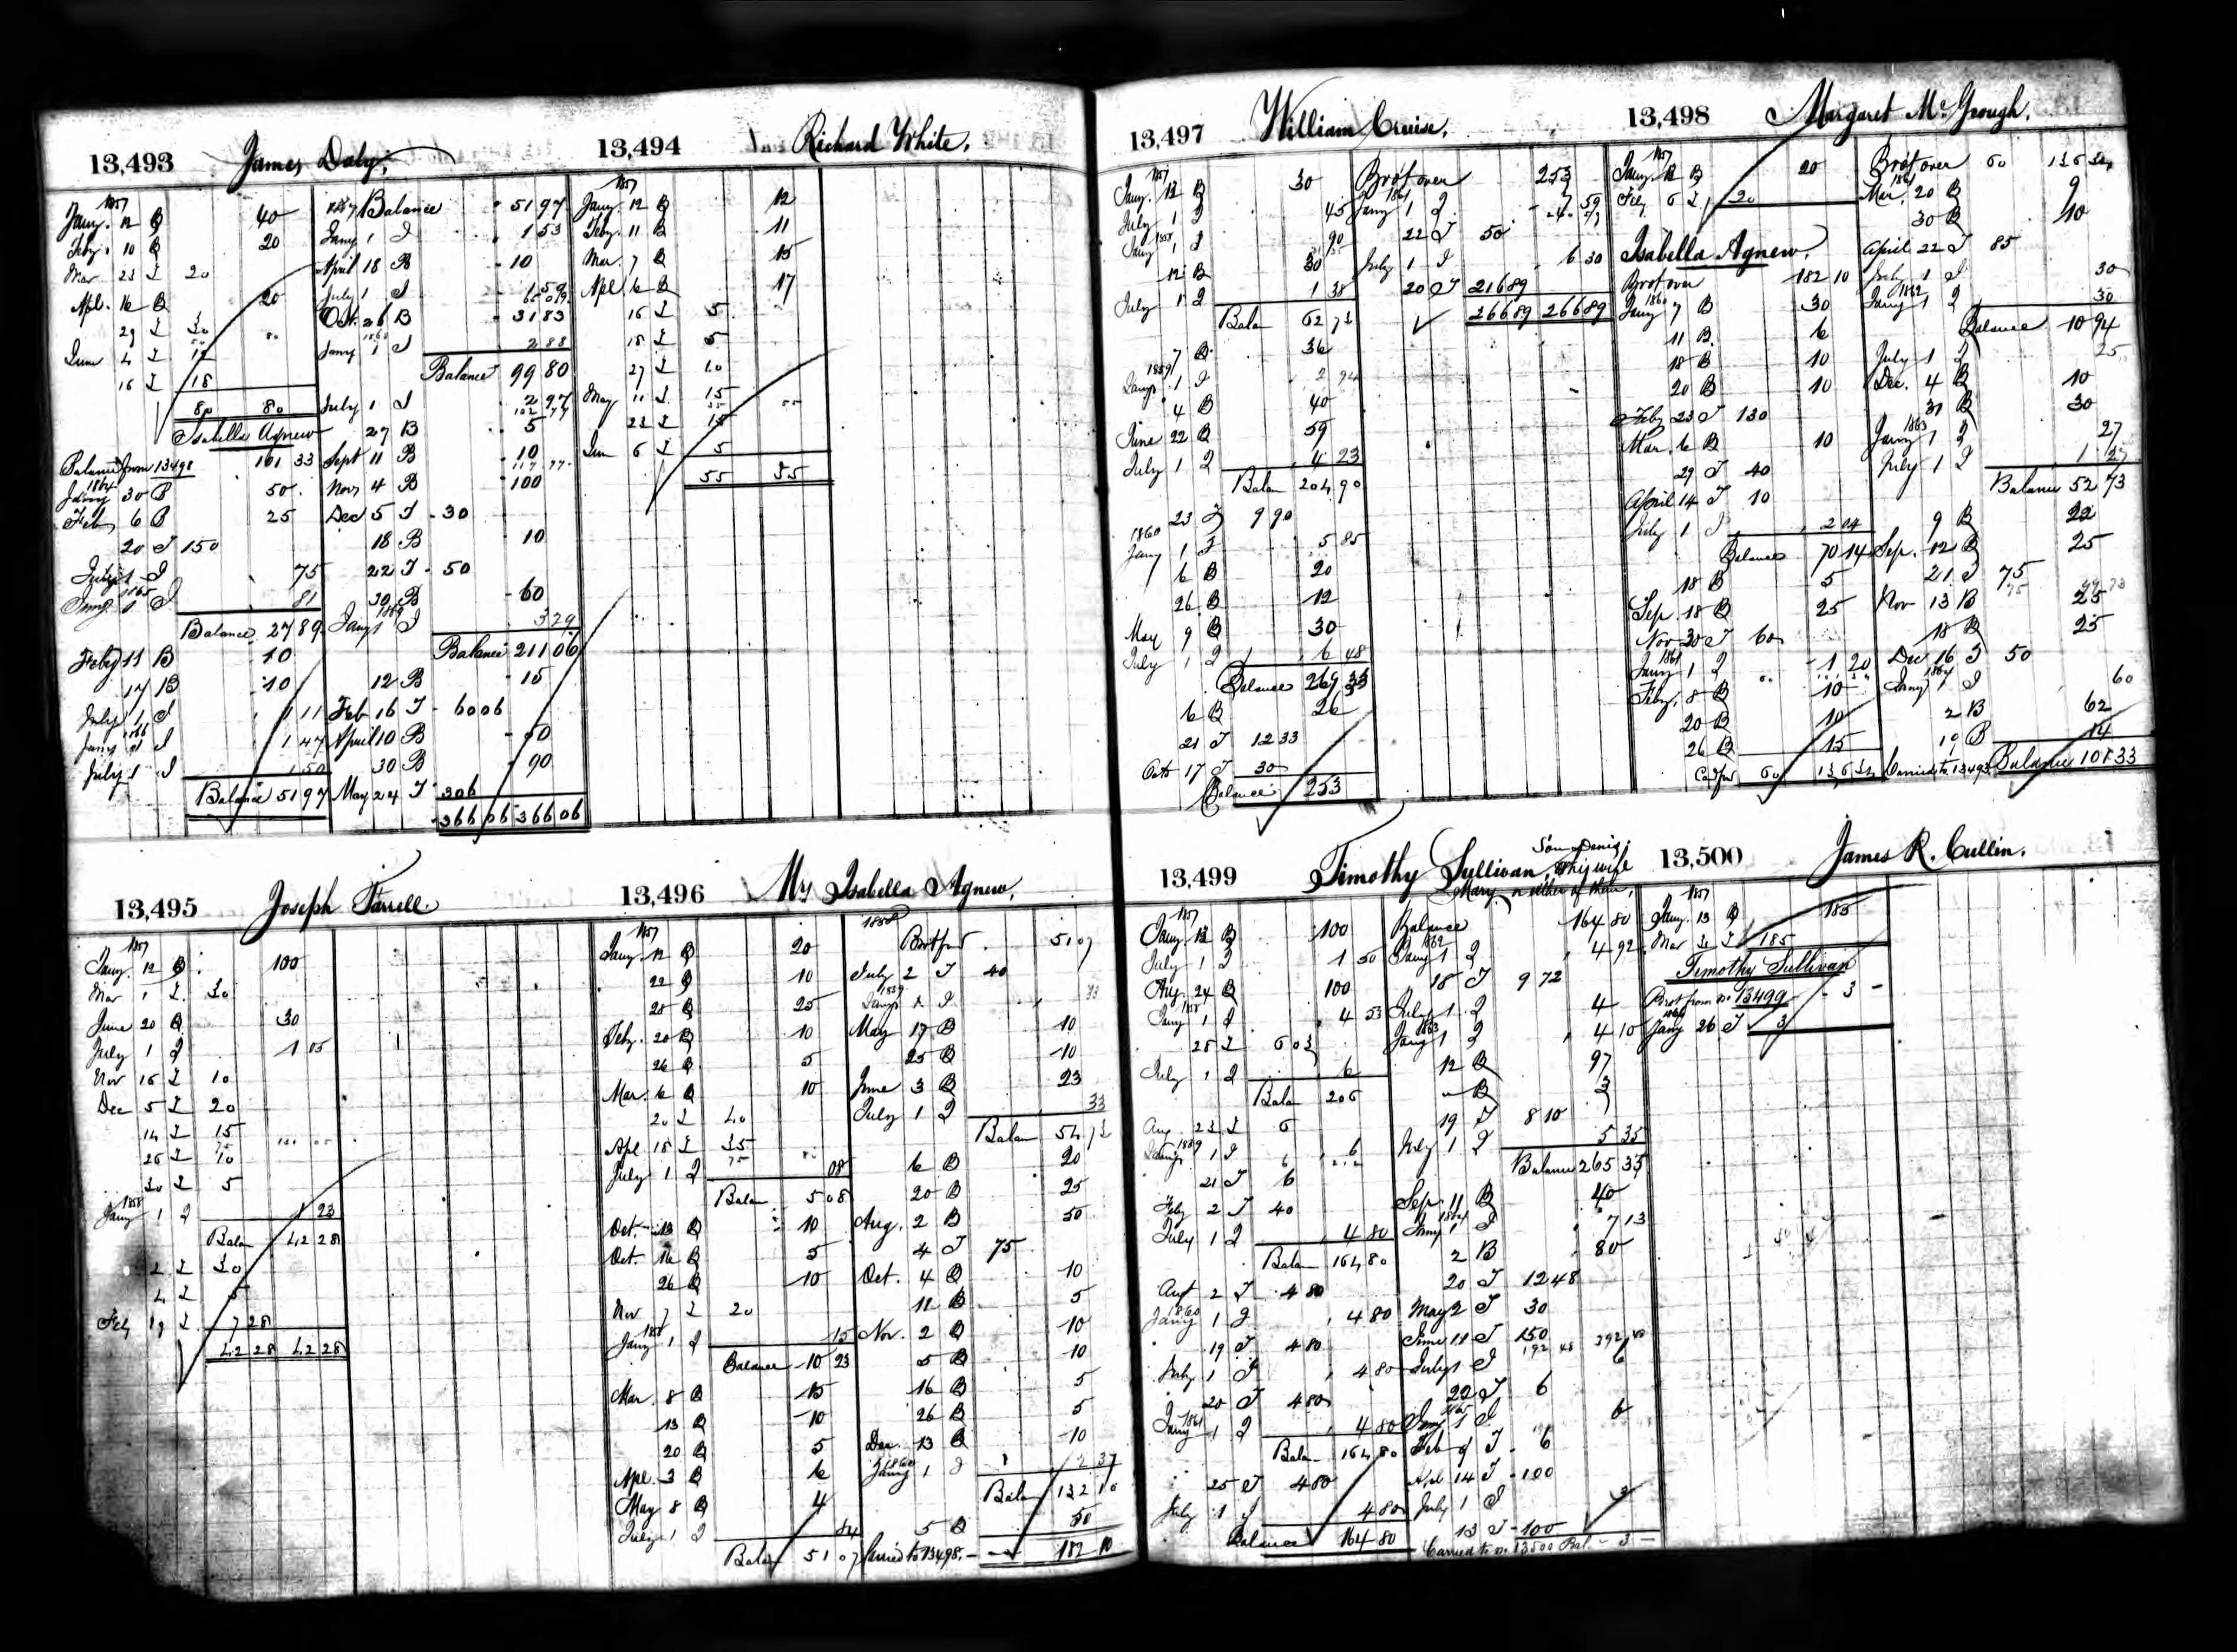 13,493 James Daly,
1857
Jany. 12 B 40
Feby. 10 B 20
Mar 23 I 20
Apl. 16 B 20
29 I 30
June 4 I 12
16 I 18
80 80
Isabella Agnew
Balance from 13498 101 33
1864
Jany 30 B 50
Feb 6 B 25
20 I 150
July 1 I 75
1865
Jany 1 I 81
Balance 27 89
Feby 11 B 10
17 B 10
July 1 I 1 11
1866
Jany 1 I 1 47
July 1 I 1 50
Balance 51 97
1867 Balance 51 97
Jany 1 I 1 53
April 18 B 10
July 1 I 1 59
Oct. 26 B 31 83
1868
Jany 1 I 2 88
Balance 99 80
July 1 I 2 97
27 B 5
Sept 11 B 10
Nov 4 B 100
Dec 5 I 30
18 B 10
22 I 50
30 B 60
1869
Jany 1 I 3 29
Balance 211 06
12 B 15
Feb 16 I 60 06
April 10 B 50
30 B 90
May 24 I 306
366 06 366 06
13,494 Richard White,
1857
Jany. 12 B 12
Feby. 11 B 11
Mar. 7 B 15
Apl. 6 B 17
16 I 5
18 I 5
27 I 10
May 11 I 15
23 I 15
June 6 I 5
55 55
13,495 Joseph Farrell.
1857
Jany. 12 B 100
Mar 1 I 30
June 20 B 30
July 1 I 1 05
Nov 16 I 10
Dec 5 I 20
14 I 15
26 I 10
30 I 5
1858
Jany 1 I 1 23
Balan 42 28
2 I 30
4 I 5
Feb 19 I 7 28
42 28 42 28
13,496 Mrs Isabella Agnew,
1857
Jany. 12 B 20
22 B 10
28 B 25
Feby. 20 B 10
26 B 5
Mar. 6 B 10
20 I 40
Apl 18 I 35
July 1 I 08
Balan 5 08
Oct. 13 B 10
Oct. 16 B 5
26 B 10
Nov 7 I 20
1858
Jany 1 I 15
Balance 10 23
Mar. 8 B 15
13 B 10
20 B 5
Apl. 3 B 6
May 8 B 4
July 1 I 84
Balan 51 07
1858
Brot for 51 07
July 2 I 40
1859
Jany 1 I 33
May 17 B 10
25 B 10
June 3 B 23
July 1 I 33
Balan 54 73
6 B 20
20 B 25
Aug. 2 B 50
4 I 75
Oct. 4 B 10
11 B 5
Nov. 2 B 10
5 B 10
16 B 5
26 B 5
Dec. 13 B 10
1860
Jany 1 I 2 37
Balan 132 10
5 B 50
Carried to 13498. 182 10
13,497 William Cruise,
1857
Jany. 12 B 30
July 1 I 45
1858
Jany 1 I 90
12 B 30
July 1 I 1 38
Balan 62 73
7 B 36
1859
Jany. 1 I 2 94
4 B 40
June 22 B 59
July 1 I 4 23
Balan 204 90
23 I 9 90
1860
Jany 1 I 5 85
6 B 20
26 B 12
May 9 B 30
July 1 I 6 48
Balance 269 33
6 B 26
21 I 12 33
Octo 17 I 30
Balance 253
Brot over 253
1861
Jany 1 I 7 59
22 I 50
July 1 I 6 30
20 I 216 89
266 89 266 89
13,498 Margaret McGrough.
1857
Jany. 12 B 20
Feby 6 I 20
Isabella Agnew.
Brot over 182 10
1860
Jany 7 B 30
11 B. 6
18 B 10
20 B 10
Feby 23 I 130
Mar. 6 B 10
29 I 40
April 14 I 10
July 1 I 2 04
Balance 70 14
18 B 5
Sep 18 B 25
Nov 30 I 60
1861
Jany 1 I 1 20
Feby. 8 B 10
20 B 10
26 B 15
Brot over 60
1861
Mar. 20 B 9
30 B 10
April 22 I 85
July 1 I 30
1862
Jany 1 I 30
Balance 10 94
July 1 I 25
Dec. 4 B 10
31 B 30
1863
Jany 1 I 27
July 1 I 1 27
Balance 52 73
9 B 22
Sep. 12 B 25
21 I 75
Nov 13 B 25
18 B 25
Dec 16 I 50
1864
Jany 1 I 60
2 B 62
19 B 14
Carried to 13493 Balance 101.33
13,499 Timothy Sullivan, Son Denis, & his wife
Mary, or either of them,
1857
Jany. 12 B 100
July 1 I 1 50
Aug. 24 B 100
1858
Jany 1 I 4 53
28 I 6 03
July 1 I 6
Balan 206
Aug. 23 I 6
1859
Jany 1 I 6
21 I 6
Feby 2 I 40
July 1 I 4 80
Balan 164 80
Augt 2 I 4 80
1860
Jany 1 I 4 80
19 I 4 80
July 1 I 4 80
20 I 4 80
1861
Jany 1 I 4 80
Balan 164 80
25 I 4 80
July 1 I 4 80
Balance 164 80
Balance 164 80
1862
Jany 1 I 4 92
18 I 9 72
July 1 I 4
1863
Jany 1 I 4 10
12 B 97
" B 3
19 I 8 10
July 1 I 5 35
Balance 265 35
Sep 11 B 40
1864
Jany 1 I 7 13
2 B 80
20 I 12 48
May 2 I 30
June 11 I 150
July 1 I 6
22 I 6
1865
Jany 1 I 6
Feb 9 I 6
Apl 14 I 100
July 1 I 3
13 I 100
Carried to No 13500 Bal. 3
13,500 James R. Cullin.
1857
Jany. 13 B 185
Mar 31 I 185
Timothy Sullivan
Brot from No 13499 3
1866
Jany 26 I 3